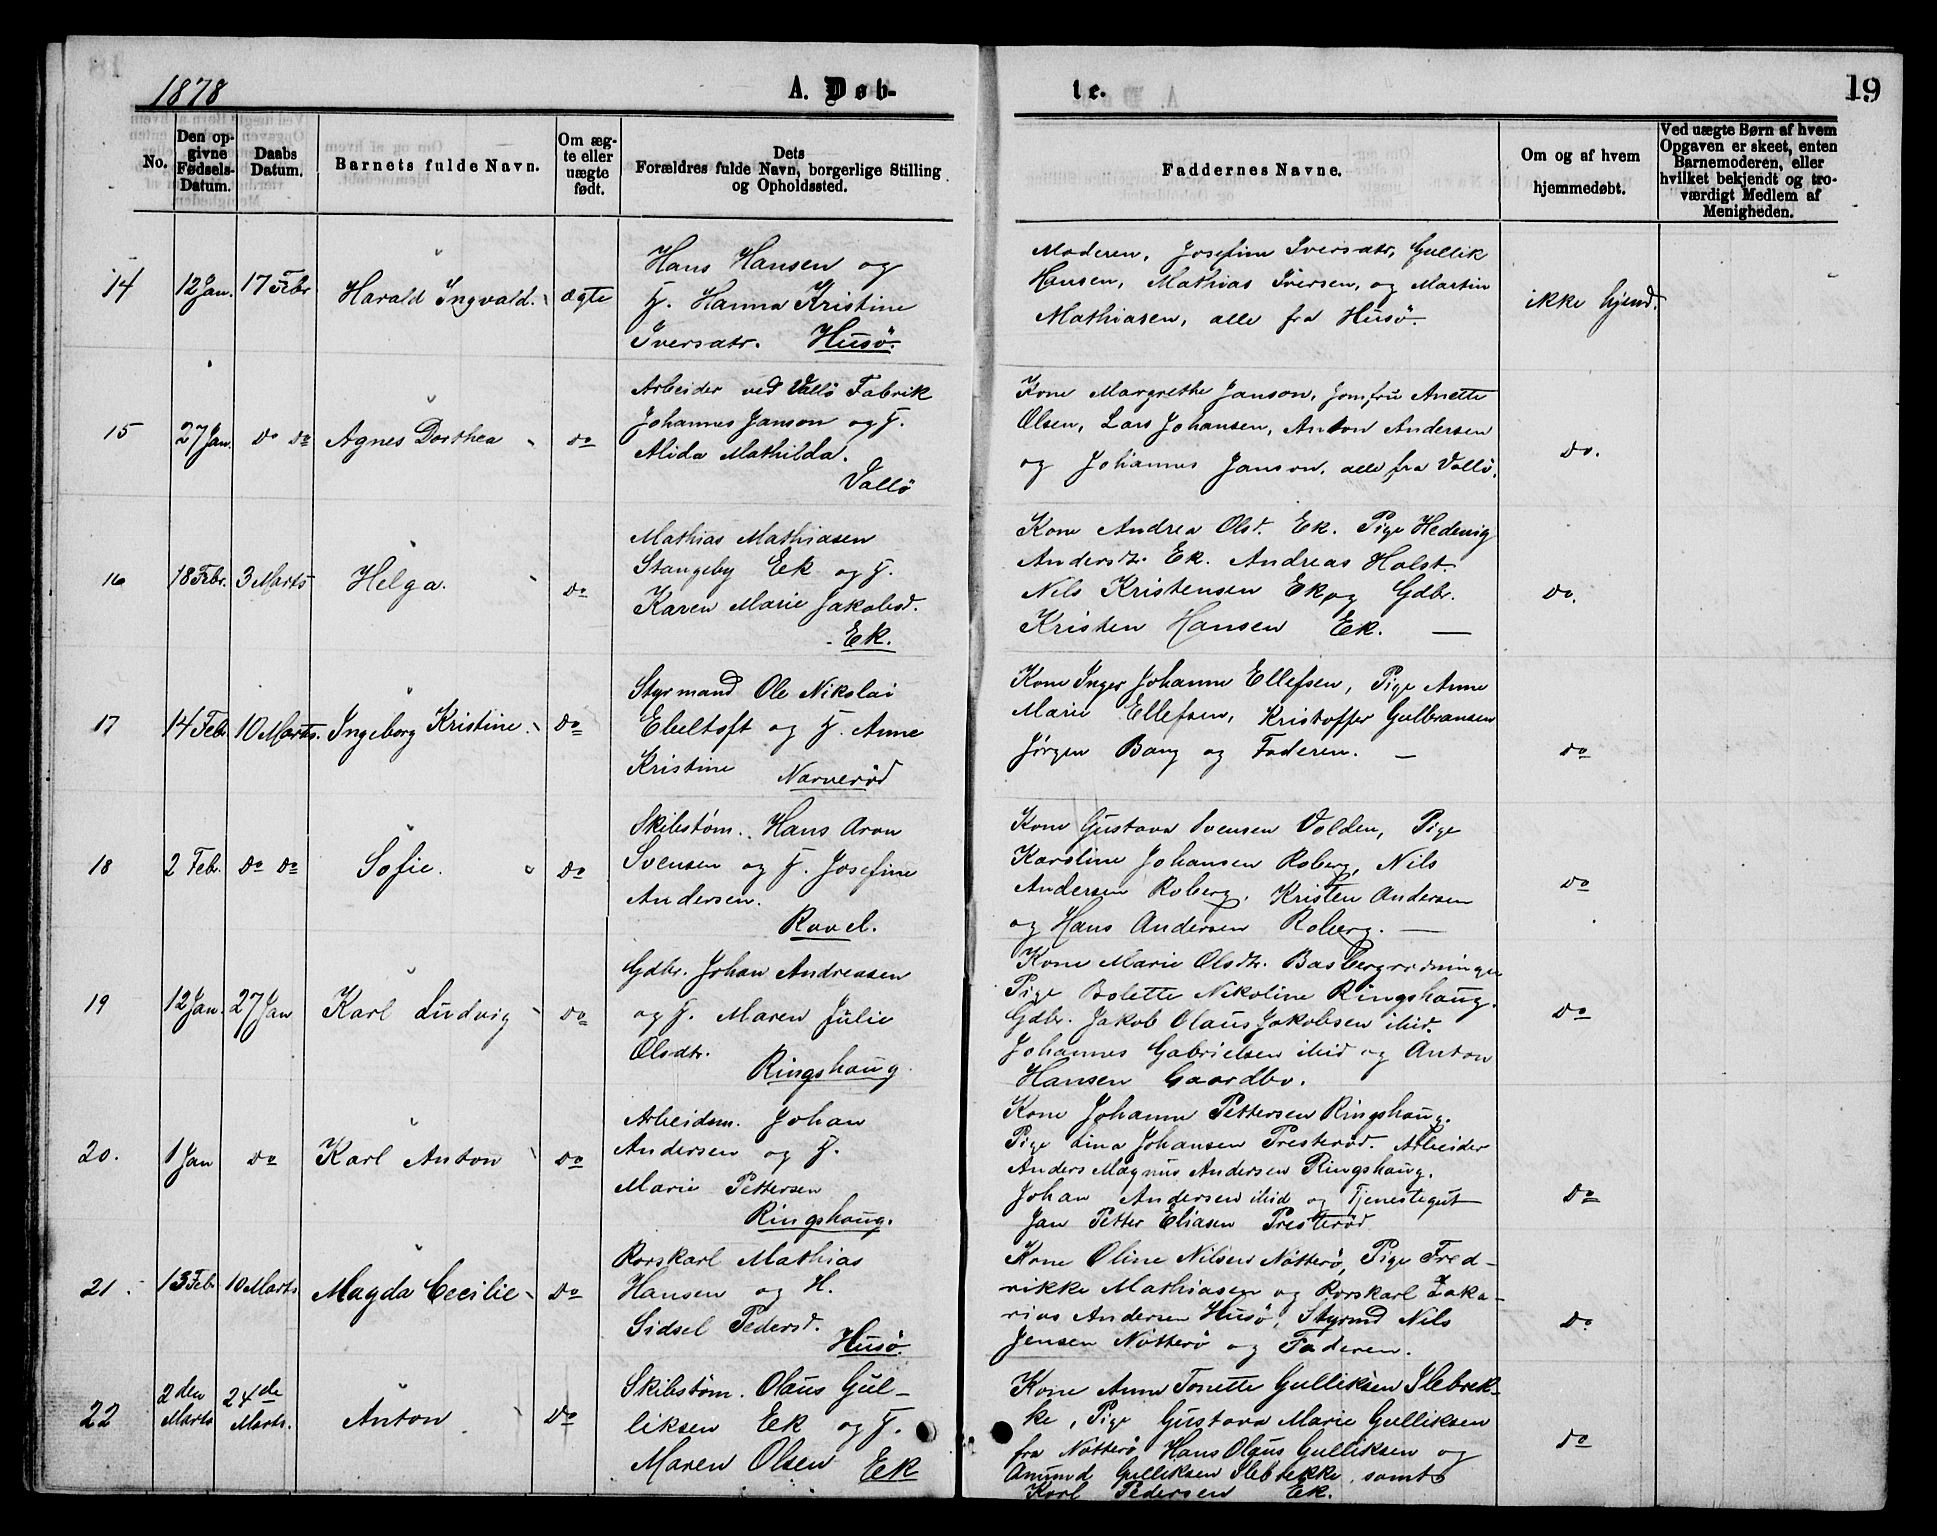 1878
A. Døb-
te.
19
No.
Den op-
givne
Fødsels-
Datum.
Daabs
Datum.
Barnets fulde Navn.
Om æg-
te eller
uægte
født.
Dets
Forældres fulde Navn, borgerlige Stilling
og Opholdssted.
Faddernes Navne.
Om og af hvem
hjemmedøbt.
Ved uægte Børn af hvem
Opgaven er skeet, enten
Barnemoderen, eller
hvilket bekjendt og tro-
værdigt Medlem af
Menigheden.
14
12 Jan.
17 Febr
Harald Ingvald.
ægte
Hans Hansen og
H. Hanna Kristine
Iversdtr. Husö.
Moderen, Josefine Iversdtr, Gullik
Hansen, Mathias Iversen, og Martin
Mathiasen, alle fra Husö.
ikke hjemd.
15
27 Jan.
do do
Agnes Dorthea
do
Arbeider ved Vallö Fabrik
Johannes Janson og H.
Alida Mathilda.
Vallö
Kone Margrethe Janson, Jomfru Anette
Olsen, Lars Johansen, Anton Andersen
og Johannes Janson, alle fra Vallö.
do.
16
18 Febr.
3 Marts
Helga.
do
Mathias Mathiasen
Stangeby Ek og H.
Karen Marie Jakobsd.
Ek.
Kone Andrea Olsd. Ek. Pige Hedevig
Andersdtr. Ek. Andreas Holst.
Nils Kristensen Ek og Gdbr.
Kristen Hansen Ek. —
do.
17
14 Feb
10 Marts.
Ingeborg Kristine.
do
Styrmand Ole Nikolai
Ebeltoft og H. Anne
Kristine Narverød
Kone Inger Johanne Ellefsen, Pige Anne
Marie Ellefsen, Kristoffer Gulbransen
Jörgen Bang og Faderen. —
do
18
2 Feb.
do do
Sofie.
do
Skibstøm. Hans Aron
Svensen og H. Josefine
Andersen.
Ravel.
Kone Gustava Svensen Volden, Pige
Karoline Johansen Roberg, Nils
Andersen Roberg, Kristen Andersen
og Hans Andersen Roberg. —
do
19
12 Jan.
27 Jan
Karl Ludvig
do
Gdbr. Johan Andreasen
og H. Maren Julie
Olsdtr.
Ringshaug.
Kone Marie Olsdtr. Basbergrødningen
Pige Bolette Nikoline Ringshaug.
Gdbr. Jakob Olaus Jakobsen ibid.
Johannes Gabrielsen ibid og Anton
Hansen Gaardbo.
do
20.
1 Jan
do
Karl Anton
do
Arbeidsm. Johan
Andersen og H.
Marie Pettersen
Ringshaug.
Kone Johanne Pettersen Ringshaug.
Pige Lina Johansen Presterød. Arbeider
Anders Magnus Andersen Ringshaug.
Johan Andersen ibid og Tjenestegut
Jan Petter Eliasen Presterød
do
21.
13 Feb
10 Marts
Magda Cecilie
do
Rorskarl Mathias
Hansen og H.
Sidsel Pedersd.
Husö.
Kone Oline Nilsen Nötterö, Pige Fred-
rikke Mathiasen og Rorskarl Zaka-
rias Andersen Husö, Styrmd Nils
Jensen Nötterö og Faderen.
do.
22
2den
Marts
24de
Marts.
Anton
do
Skibstöm. Olaus Gul-
liksen Ek og H.
Maren Olsen Eek
Kone Anne Tonette Gulliksen Ilebrek-
ke, Pige Gustava Marie Gulliksen
fra Nötterö Hans Olaus Gulliksen og
Anund Gulliksen Ilebrekke, samt
Karl Pedersen Ek.
do